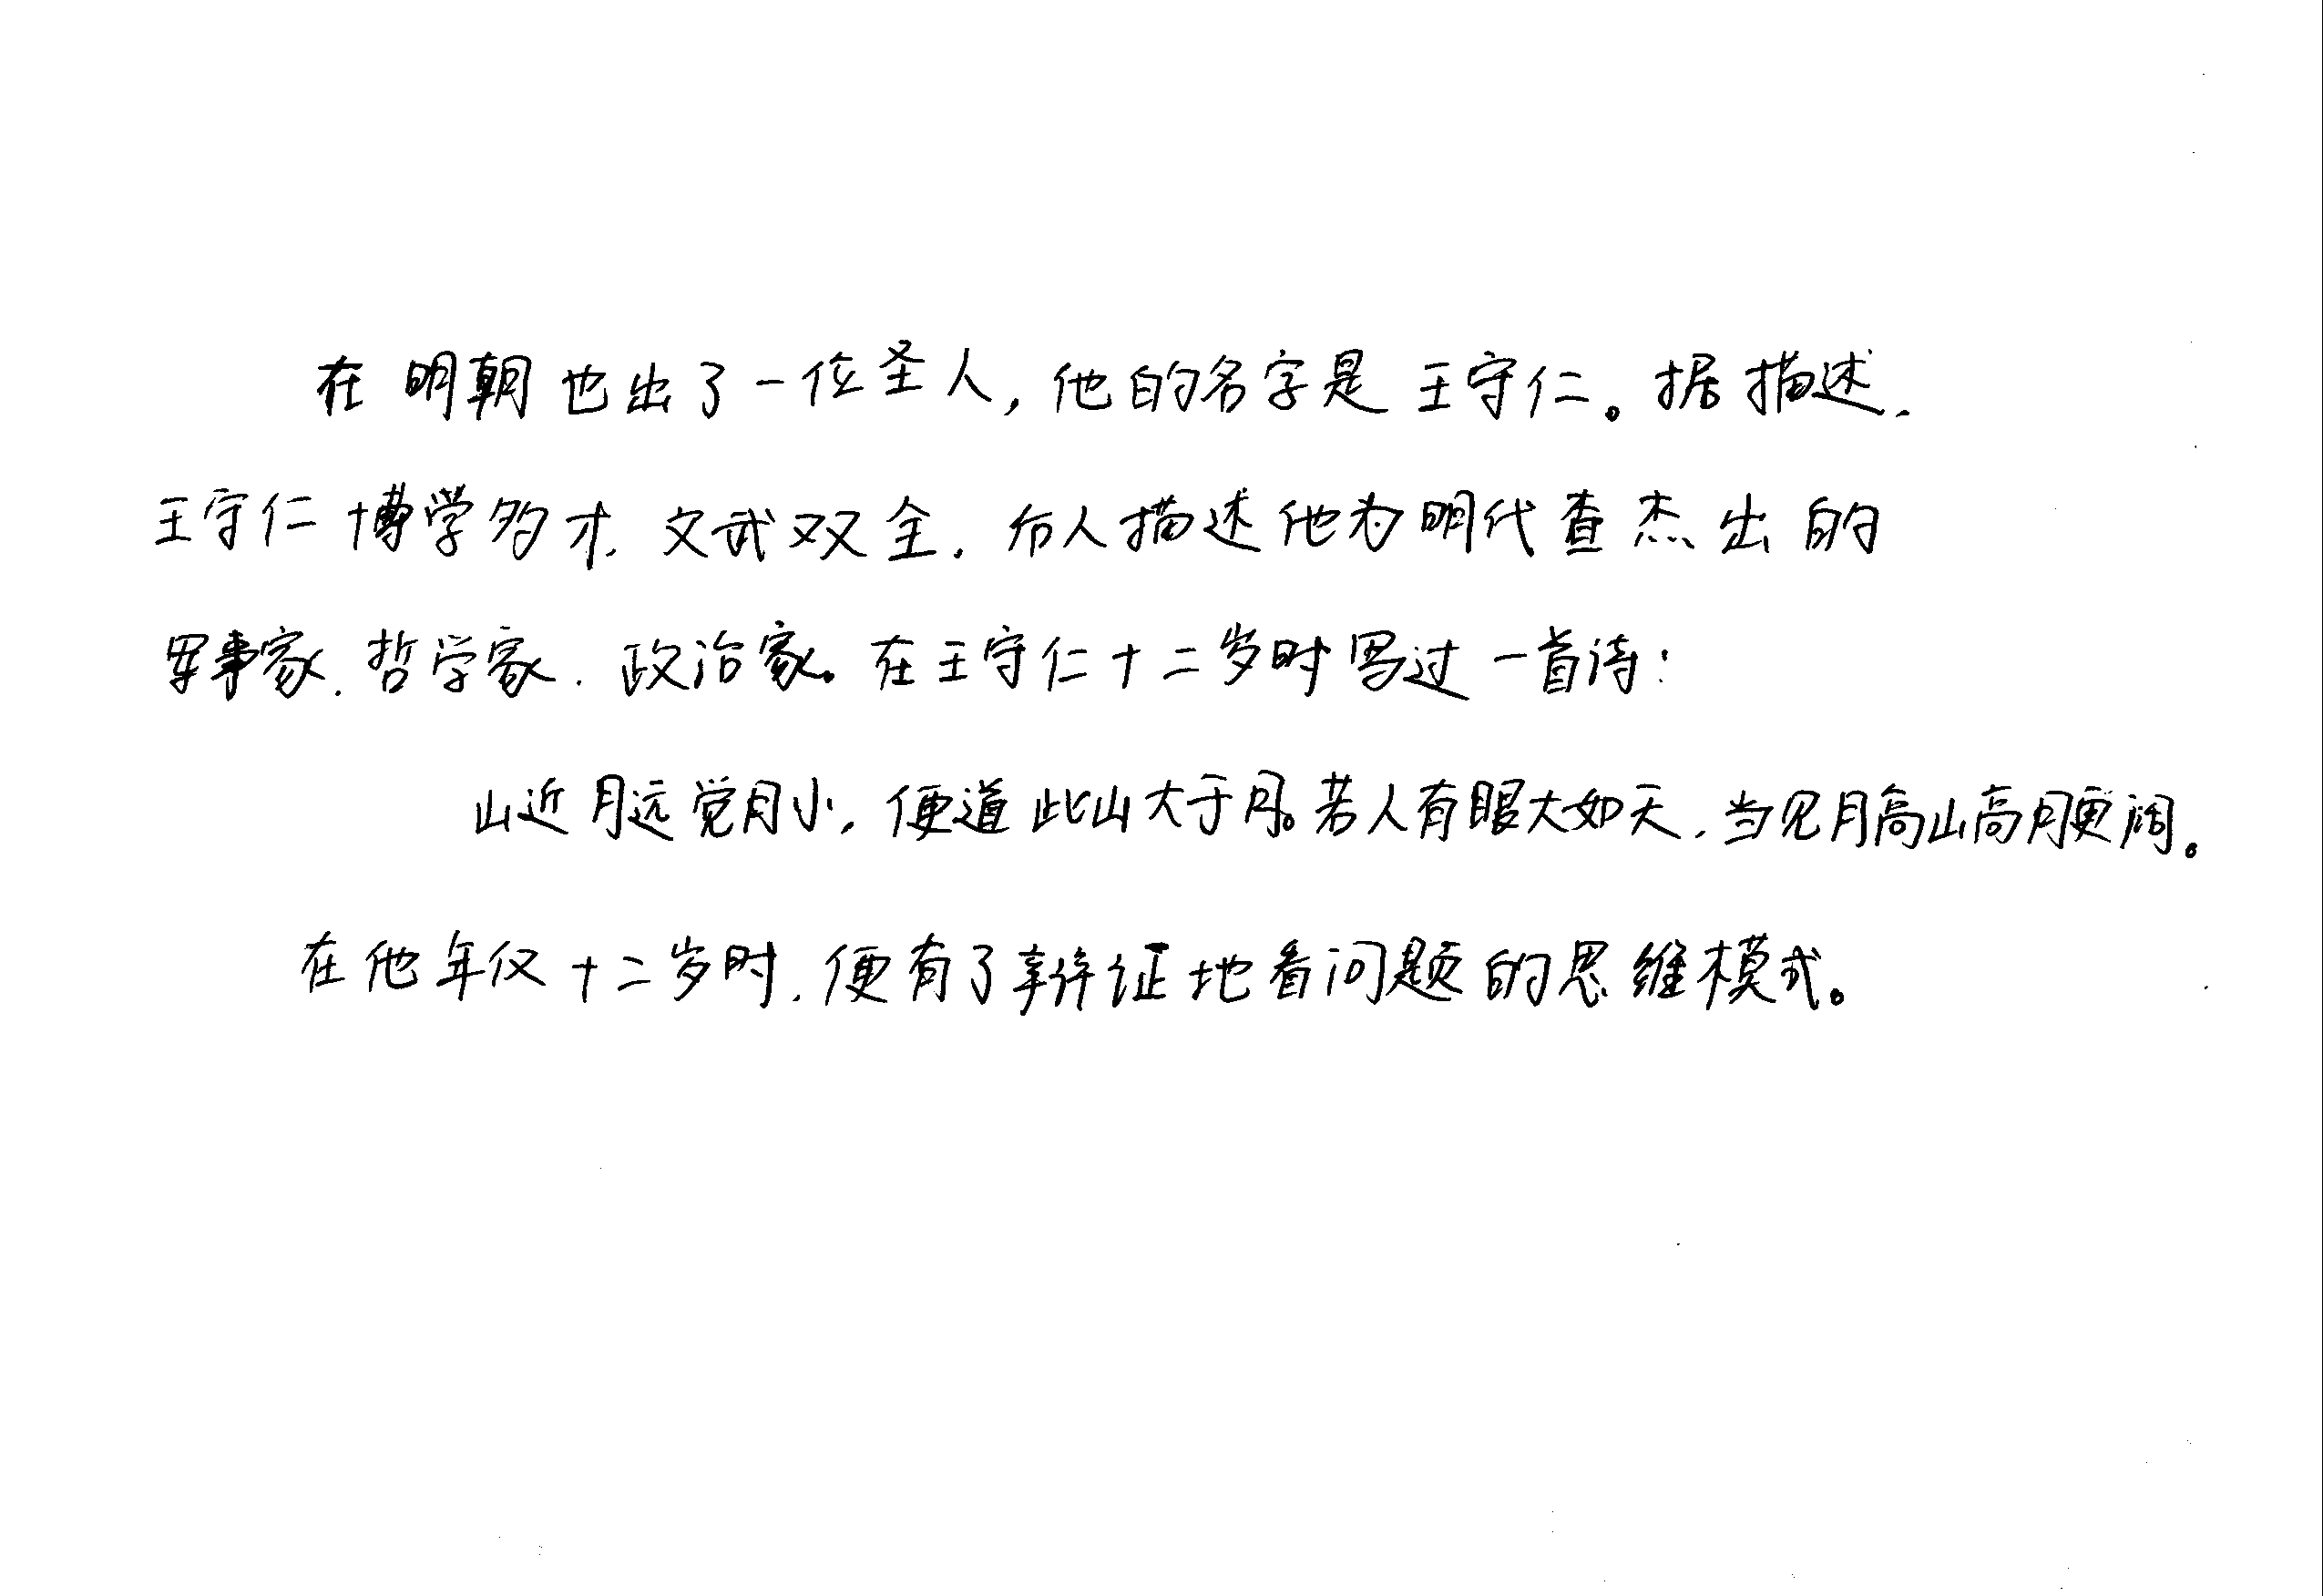 在明朝也出了一位圣人,他的名字是王守仁。据描述,
王守仁博学多才,文武双全,人描述他为明代查杰出的
军事家、哲学家、政治家。在王守仁十二岁时写过一首诗:
山近月远觉月小,便道此山大于月。若人有眼大如天,当见月高山高月更阔。
在他年仅十二岁时,便有了辩证地看问题的思维模式。